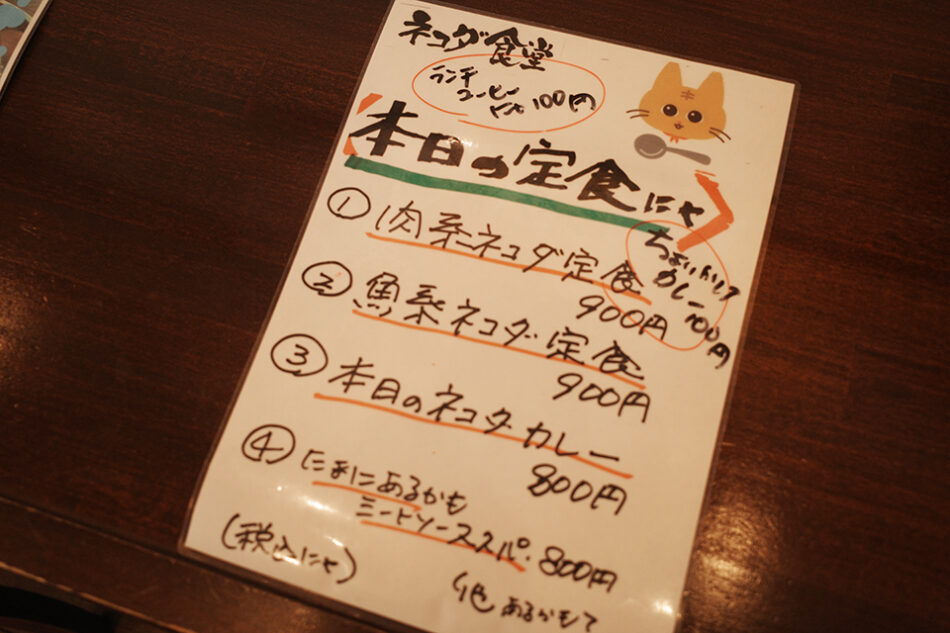 ネコダ食堂
ランチ
コーヒー
にゃ 100円
本日の定食にゃ
① 肉系ネコダ定食
900円
ちょいかけ
カレー
100円
② 魚系ネコダ定食
900円
③ 本日のネコダカレー
800円
④ たまにあるかも
ミートソーススパ. 800円
(税込にゃ)
(他 あるかもて